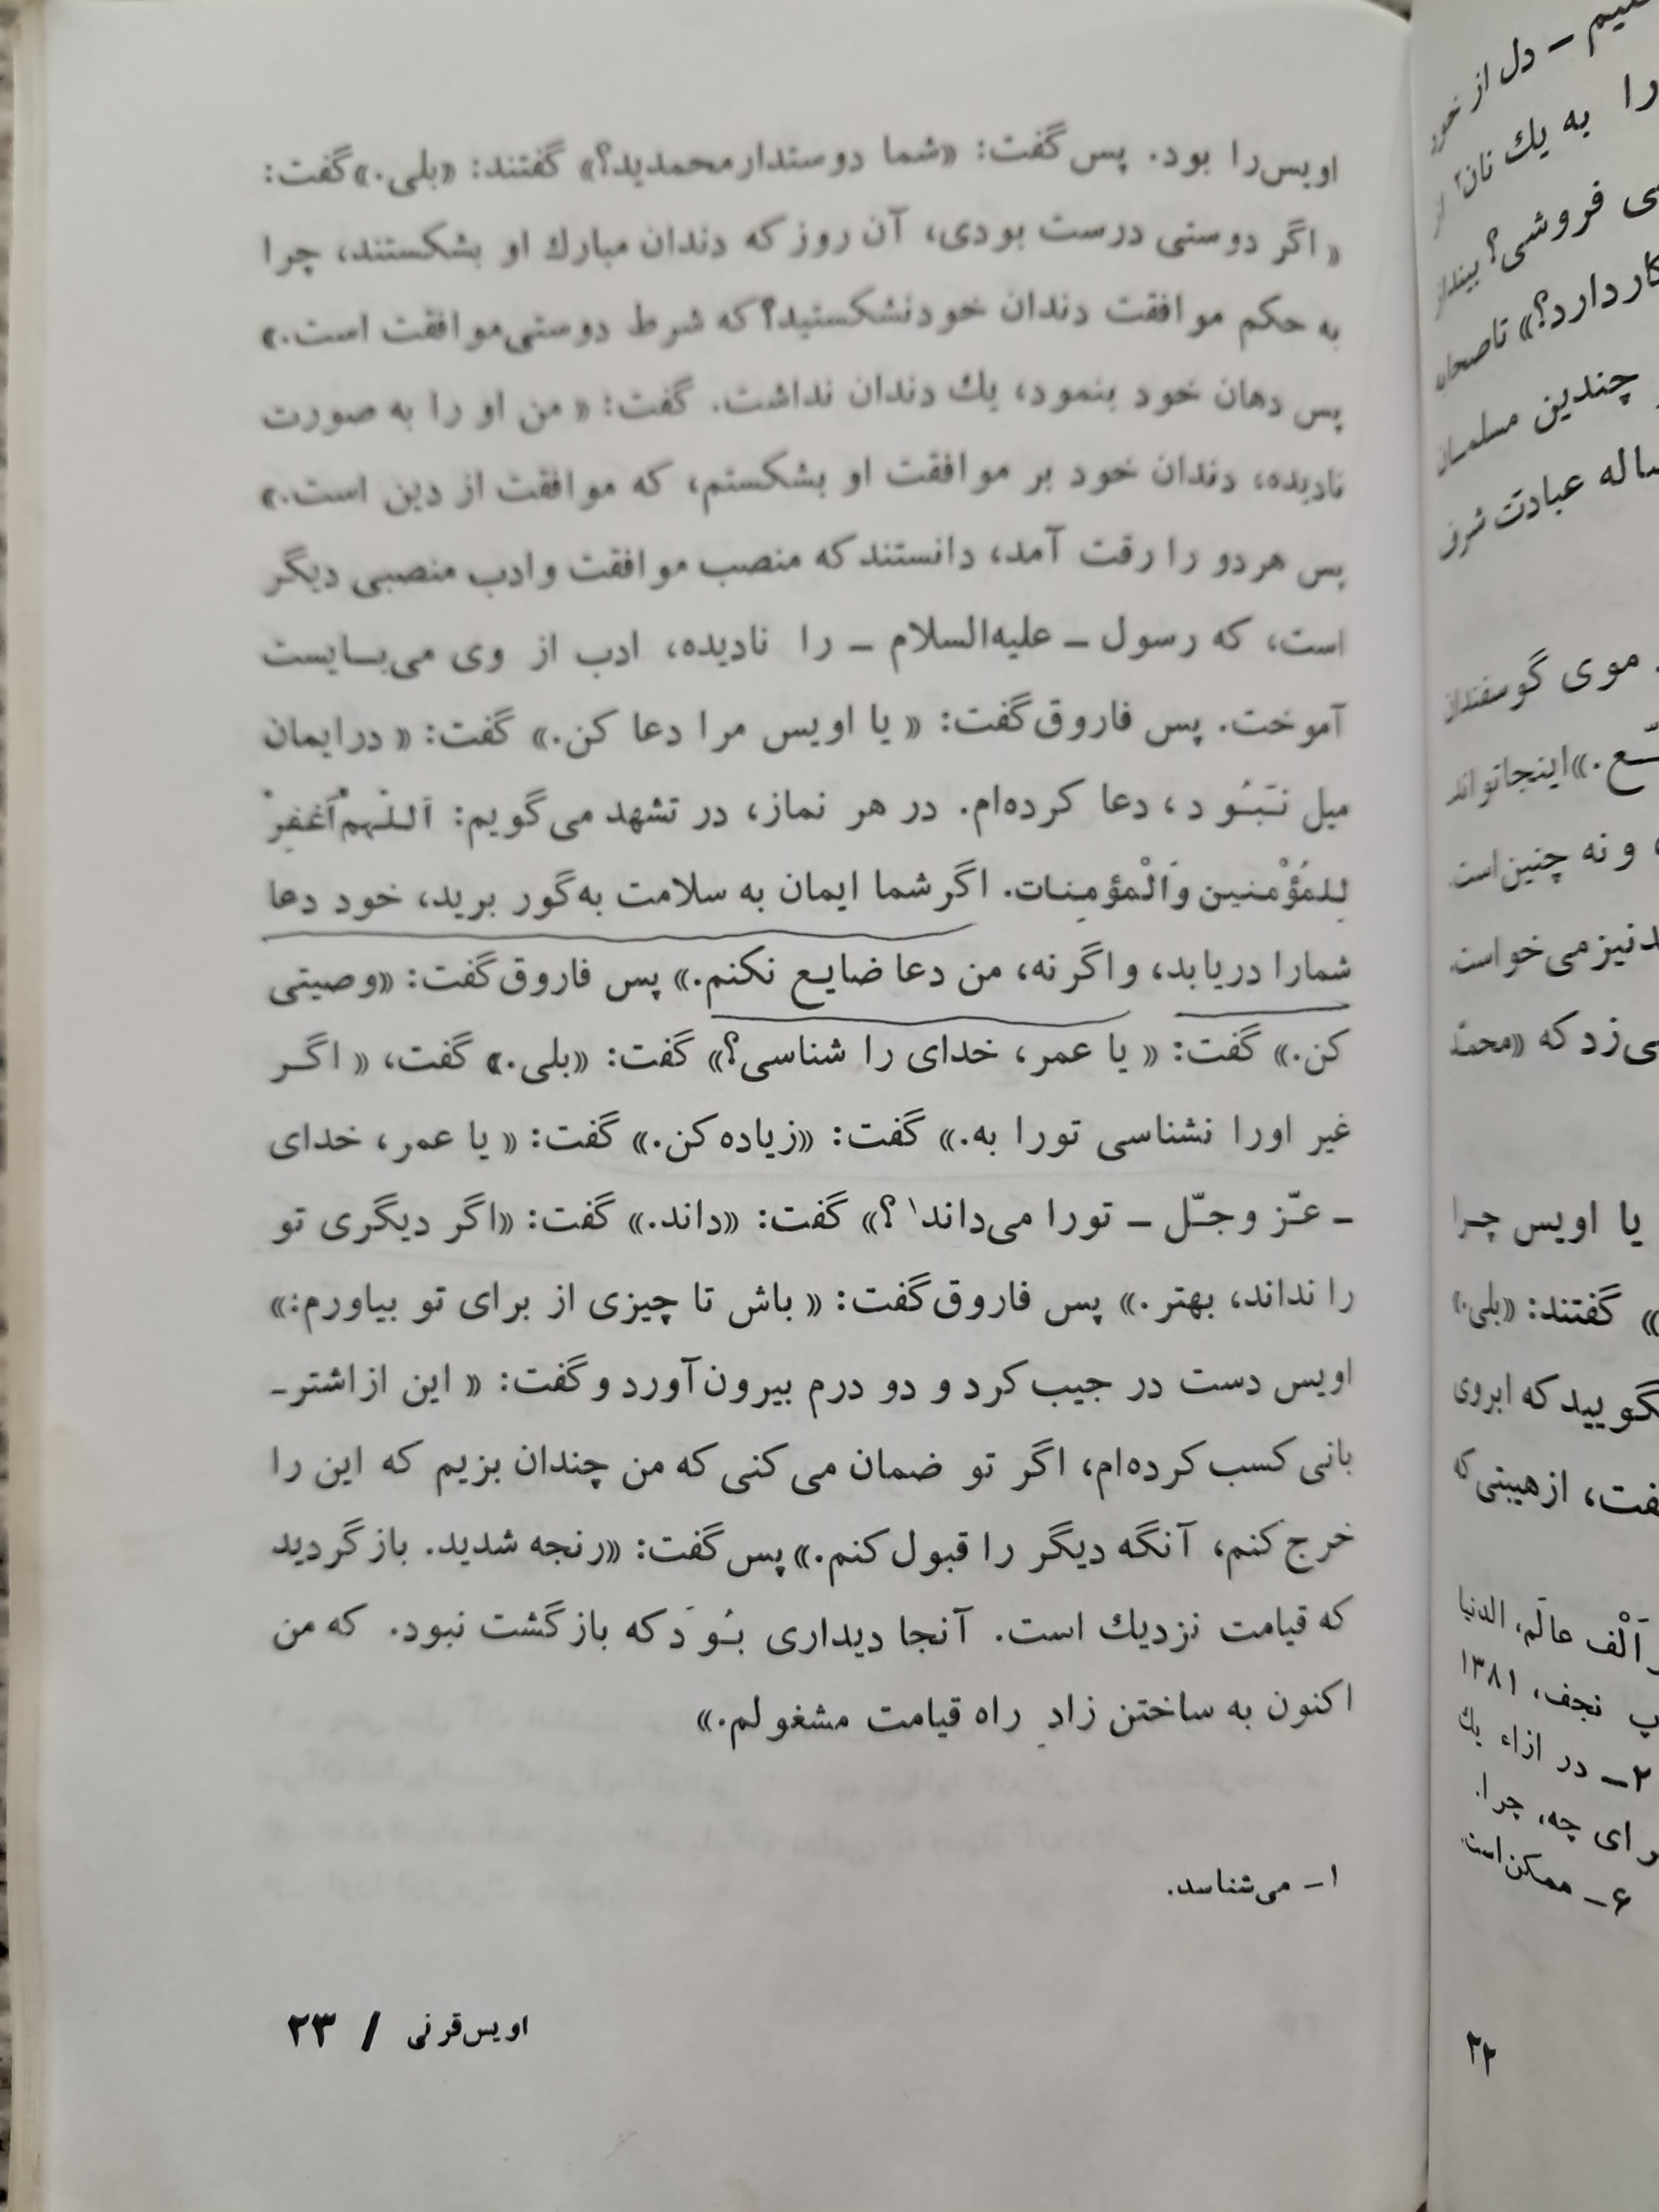 اویس‌را بود. پس گفت: «شما دوستدار محمدید؟» گفتند: «بلی.» گفت:
«اگر دوستی درست بودی، آن روز که دندان مبارك او بشکستند، چرا
به حکم موافقت دندان خود نشکستید؟ که شرط دوستی موافقت است.»
پس دهان خود بنمود، یك دندان نداشت. گفت: «من او را به صورت
نادیده، دندان خود بر موافقت او بشکستم، که موافقت از دین است.»
پس هر دو را رقت آمد، دانستند که منصب موافقت و ادب منصبی دیگر
است، که رسول ـ علیه‌السلام ـ را نادیده، ادب از وی می‌بـایست
آموخت. پس فاروق گفت: «یا اویس مرا دعا کن.» گفت: «در ایمان
میل نَبُوَد، دعا کرده‌ام. در هر نماز، در تشهد می‌گویم: اَللّٰهم اَغفِرْ
لِلمُؤْمنین وَ اَلْمؤمِنات. اگر شما ایمان به سلامت به گور برید، خود دعا
شما را دریابد، و اگر نه، من دعا ضایع نکنم.» پس فاروق گفت: «وصیتی
کن.» گفت: «یا عمر، خدای را شناسی؟» گفت: «بلی.» گفت، «اگـر
غیر او را نشناسی تو را به.» گفت: «زیاده کن.» گفت: «یا عمر، خدای
ـ عـّز و جـّل ـ تو را می‌داند۱؟» گفت: «داند.» گفت: «اگر دیگری تو
را نداند، بهتر.» پس فاروق گفت: «باش تا چیزی از برای تو بیاورم:»
اویس دست در جیب کرد و دو درم بیرون آورد و گفت: «این از اشتر‌ـ
بانی کسب کرده‌ام، اگر تو ضمان می‌کنی که من چندان بزیم که این را
خرج کنم، آنگه دیگر را قبول کنم.» پس گفت: «رنجه شدید. باز گردید
که قیامت نزدیك است. آنجا دیداری بُوَد که بازگشت نبود. که من
اکنون به ساختن زادِ راه قیامت مشغولم.»
۱ـ می‌شناسد.
اویس قرنی / ۲۳
دل از خود
را به یك نان۲
فروشی؟
دارد؟» تا صحابه
چندین مسلمـان
ساله عبادت
موی گوسفندان
اینجا تواند
و نه چنین است
نیز می‌خواست
که «محمّد
یا اویس چـرا
» گفتند: «بلی.»
که ابروی
از هیبتی که
اَلْف عالَم، الدنیا
نجف، ۱۳۸۱
۲ـ در ازاء یك
چه، چرا.
۶ـ ممکن است
۲۲